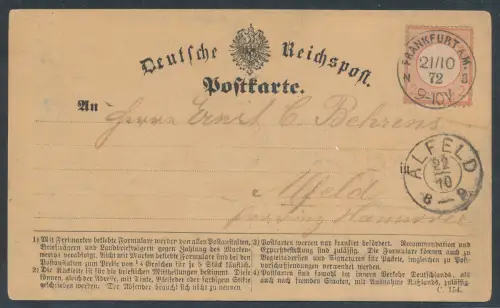 Deutsche Reichspost.
Postkarte.
FRANKFURT A.M.
21/10
72
9-10V.
An
Herrn Ernst C. Behrens
in
Alfeld
ALFELD
22
10
8-9
Provinz Hannover
1) Mit Freimarken beklebte Formulare werden von allen Postanstalten,
Briefträgern und Landbriefträgern gegen Zahlung des Marken-
werths verabfolgt. Nicht mit Marken beklebte Formulare sind bei den
Postanstalten zum Preise von 1/4 Groschen für je 5 Stück käuflich.
2) Die Rückseite ist für die brieflichen Mittheilungen bestimmt. Diese
können, ebenso wie die Adresse, mit Tinte, Bleifeder oder farbiger Stifte
geschrieben werden. Der Absender braucht sich nicht zu nennen.
3) Postkarten werden nur frankirt befördert. Recommandation und
Expressbestellung sind zulässig. Die Formulare können auch zu
4) Postkarten sind sowohl im innern Verkehr Deutschlands, als
auch nach fremden Staaten, mit Ausnahme Russlands, zulässig.
C. 154.